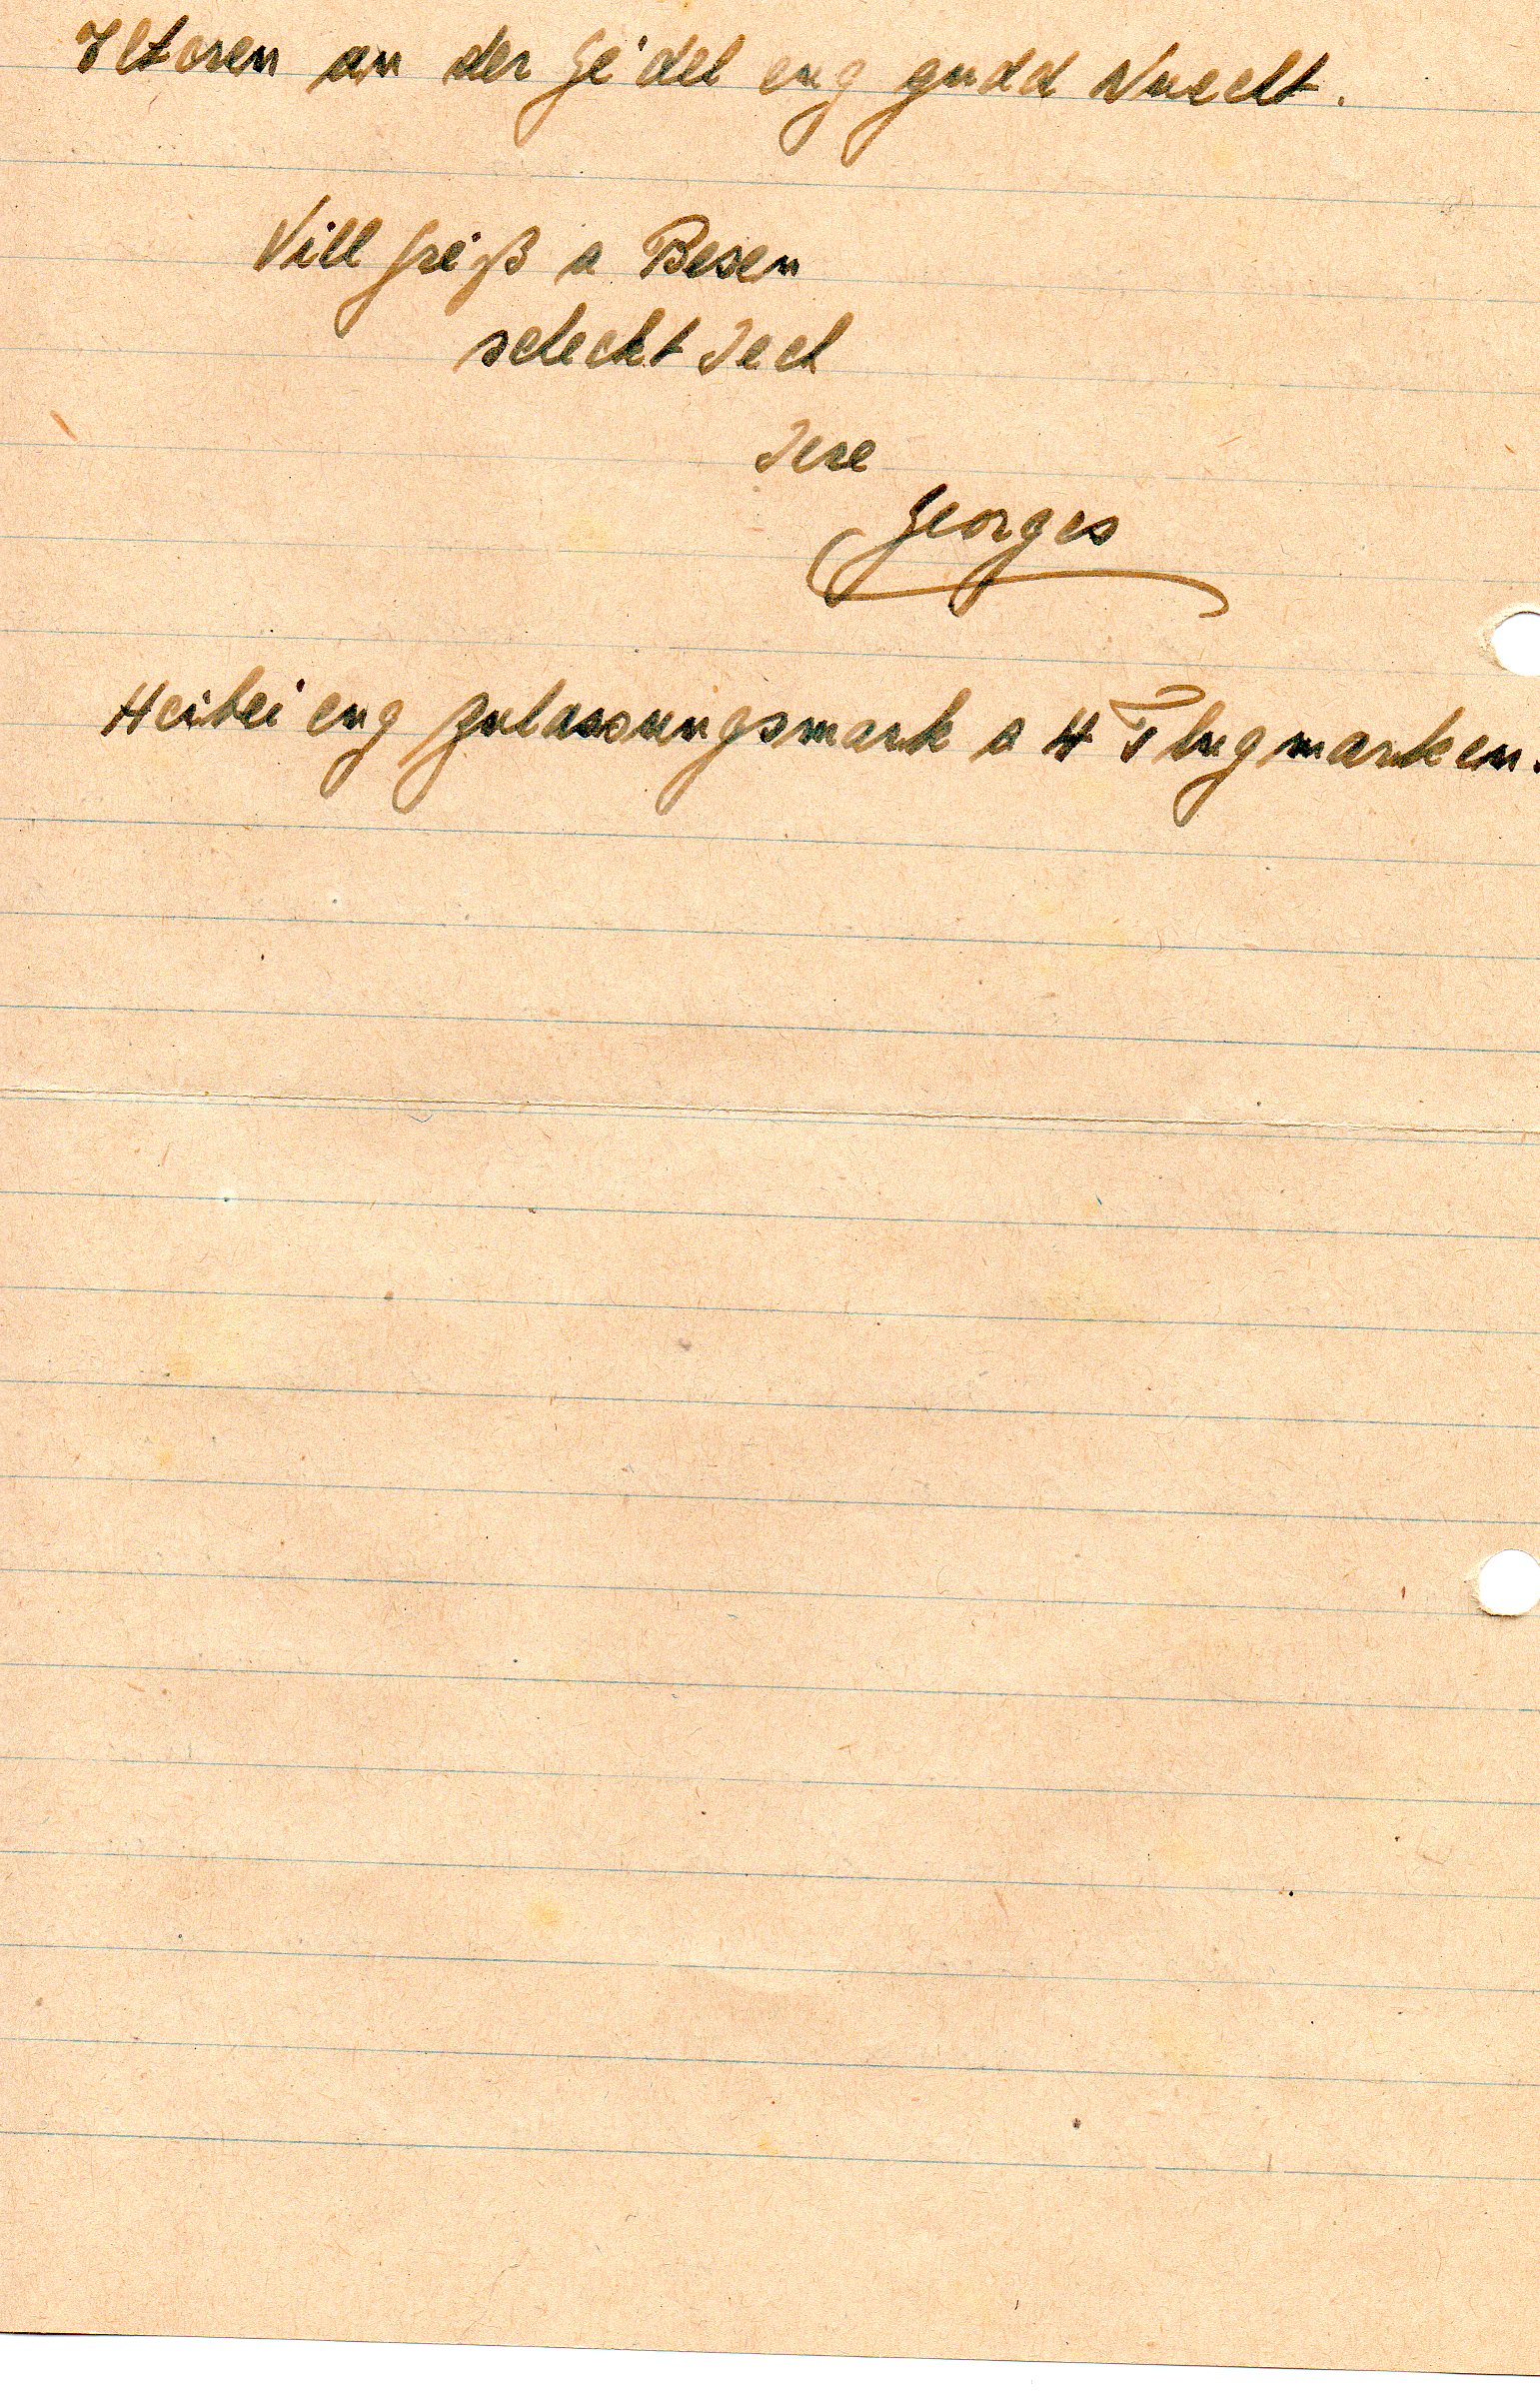 Elteren an der Gédel eng gudd Nuecht.
Vill Gréiß a Besen
scheckt Iech
Iere
Georges
Heibei eng Zulassungsmark a 4 Flugmarken.